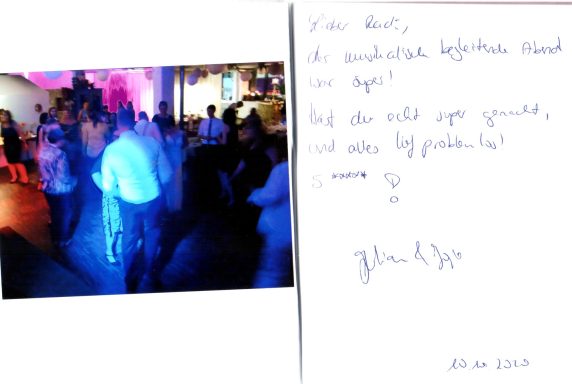 Lieber Radi,
der musikalisch begleitende Abend
war super!
Hast du echt super gemacht,
und alles lief problemlos!
5 *****
Julian &
10 10 2020